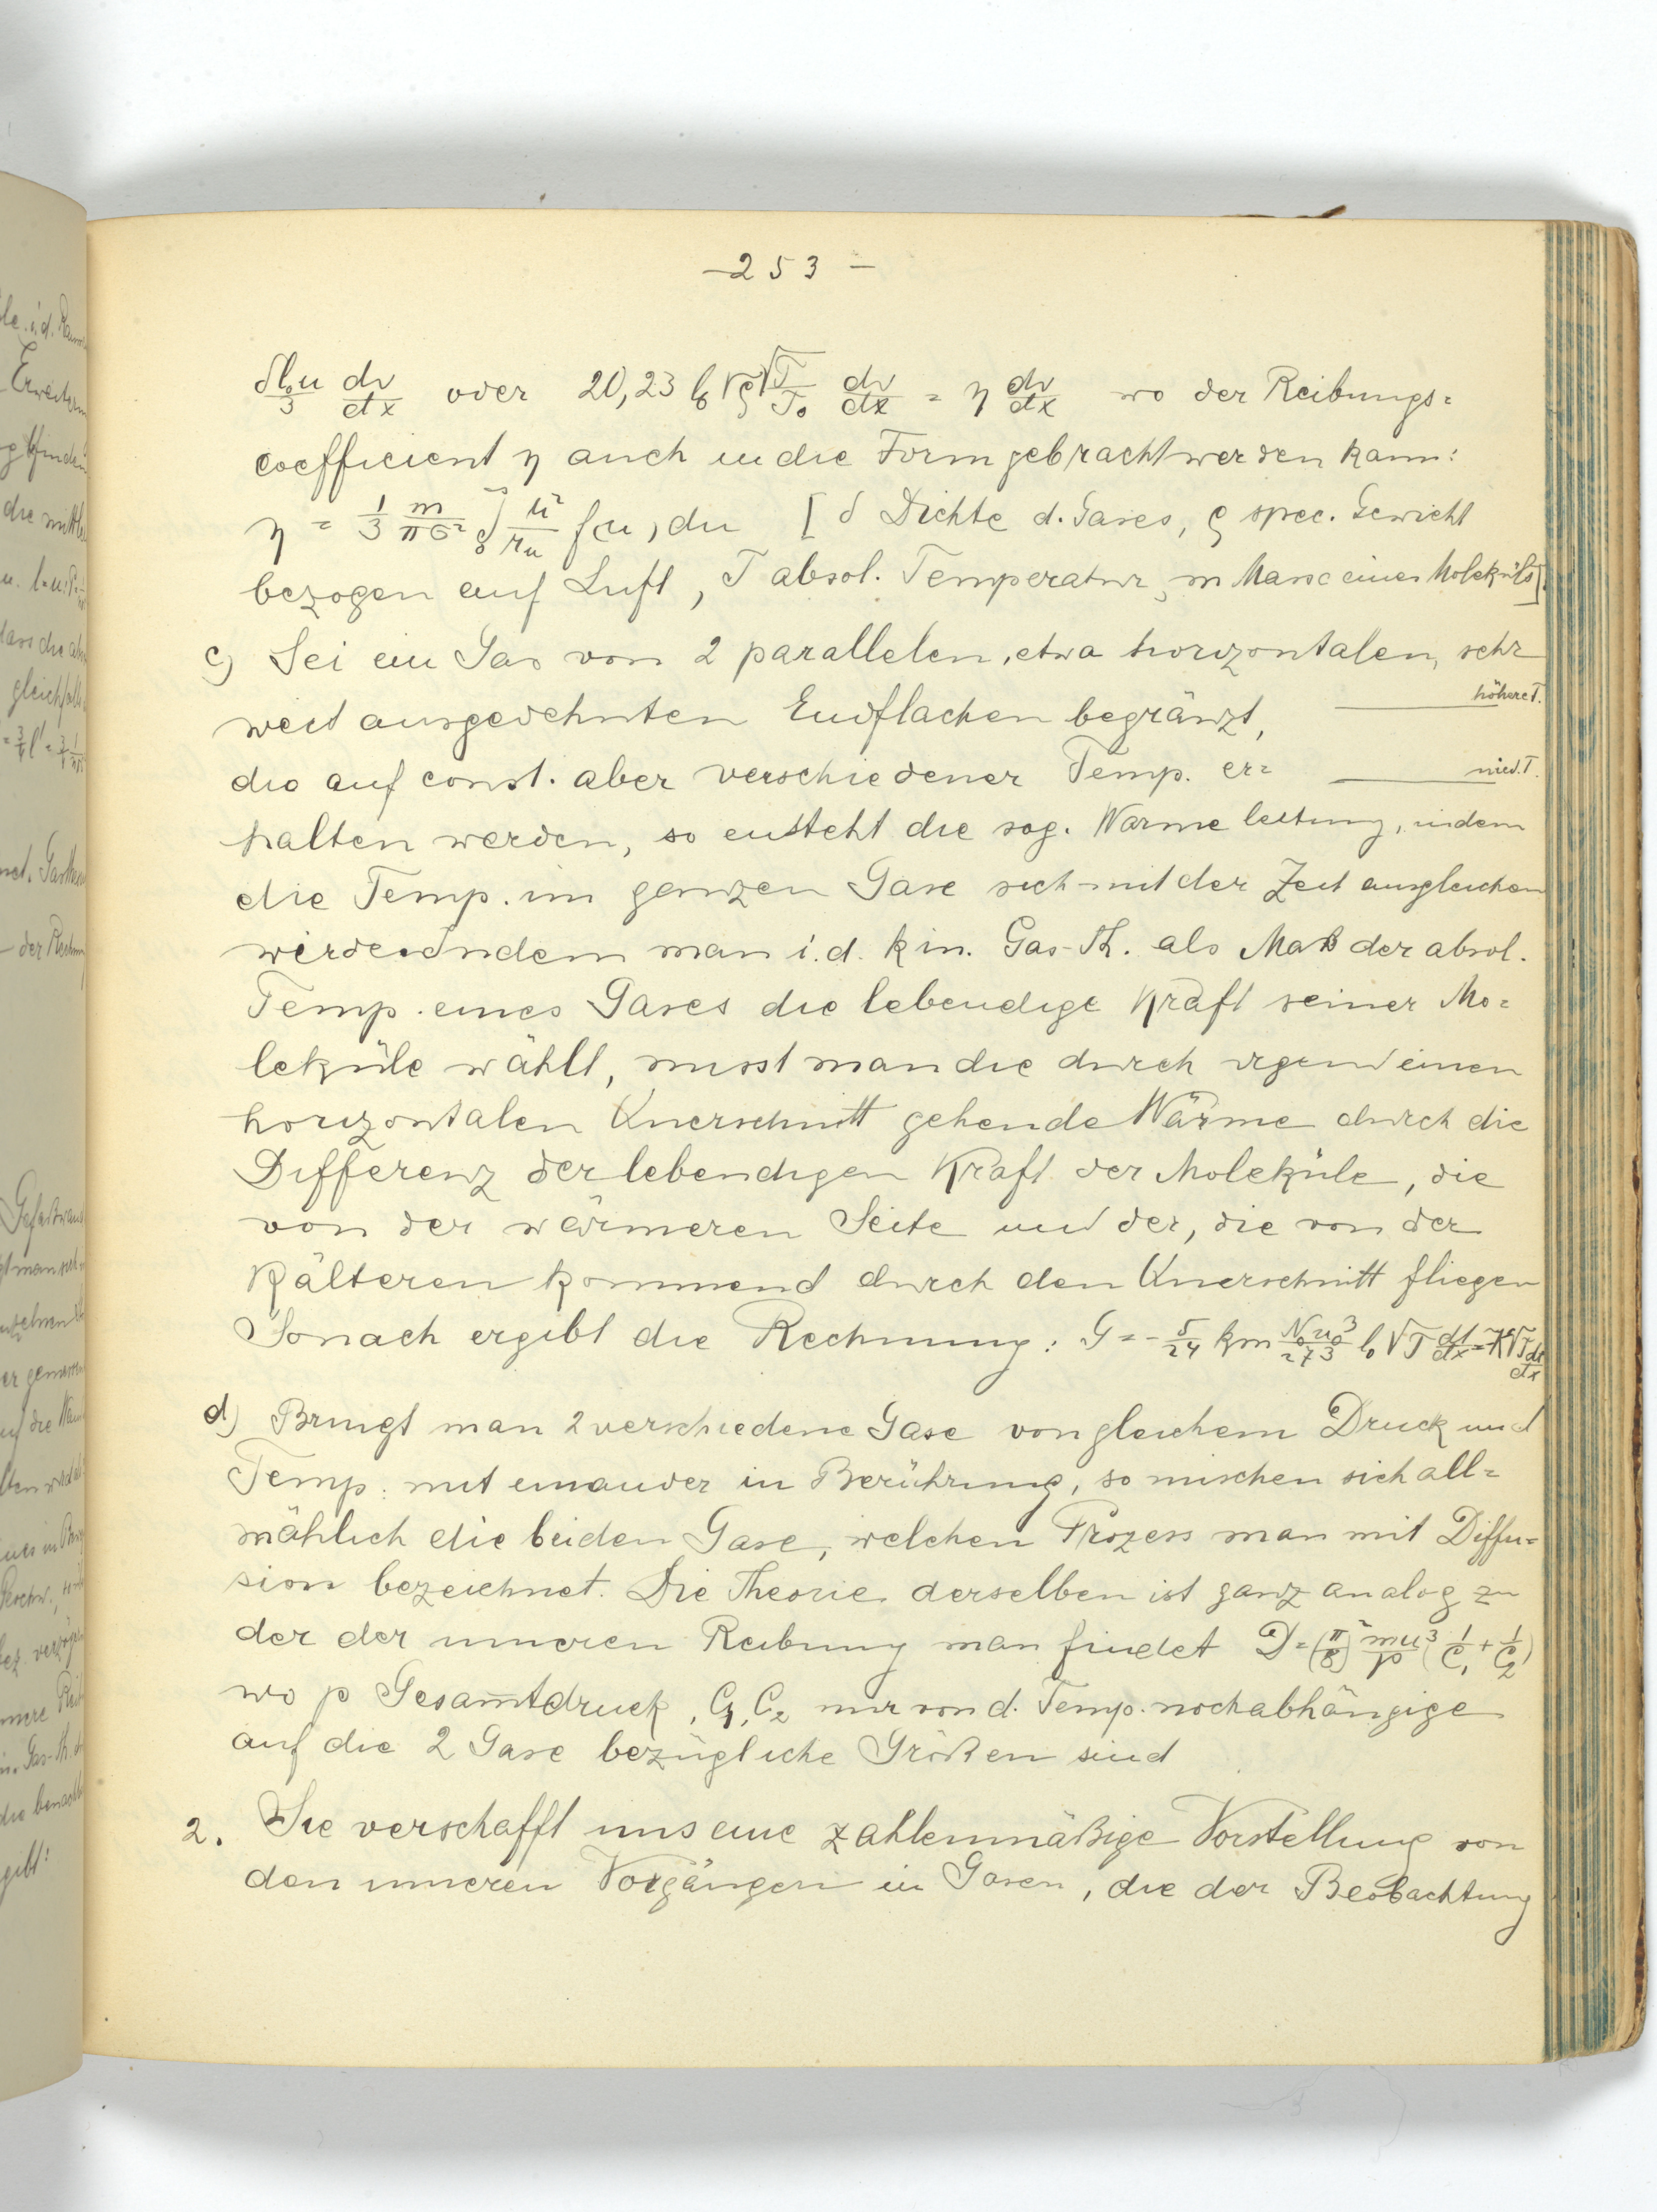 —253—
δl₀u/3 dv/dx oder 20,23 l₀ √ρ √T/T₀ dv/dx = η dv/dx wo der Reibungs=
coefficient η auch in die Form gebracht werden kann:
η = 1/3 m/πσ² ∫₀^∞ u²/r_u f(u) du [δ Dichte d. Gases, ρ spec. Gewicht
bezogen auf Luft, T absol. Temperatur, m Masse eines Moleküls].
c) Sei ein Gas von 2 parallelen, etwa horizontalen, sehr
weit ausgedehnten Endflachen begränzt,
höhere T.
die auf const. aber verschiedener Temp. er=
nied. T.
halten werden, so entsteht die sog. Warme leitung, indem
die Temp. im ganzen Gase sich mit der Zeit ausgleichen
wird. Indem man i.d. kin. Gas-Th. als Maß der absol.
Temp. eines Gases die lebendige Kraft seiner Mo=
leküle wählt, misst man die durch irgend einen
horizontalen Querschnitt gehende Wärme durch die
Differenz der lebendigen Kraft der Moleküle, die
von der wärmeren Seite und der, die von der
Kälteren kommend durch den Querschnitt fliegen
Sonach ergibt die Rechnung: G = - 5/24 km N₀u₀³/273 l₀ √T dt/dx = K√T dt/dx
d) Bringt man 2 verschiedene Gase von gleichem Druck und
Temp. mit einander in Berührung, so mischen sich all=
mählich die beiden Gase, welchen Prozess man mit Diffu=
sion bezeichnet. Die Theorie derselben ist ganz analog zu
der der inneren Reibung man findet D = (π/8)² mu³/p (1/C₁ + 1/C₂)
wo p Gesamtdruck, C₁, C₂ nur von d. Temp. noch abhängige
auf die 2 Gase bezügliche Größen sind
2. Sie verschafft uns eine zahlenmäßige Vorstellung von
den inneren Vorgängen in Gasen, die der Beobachtung